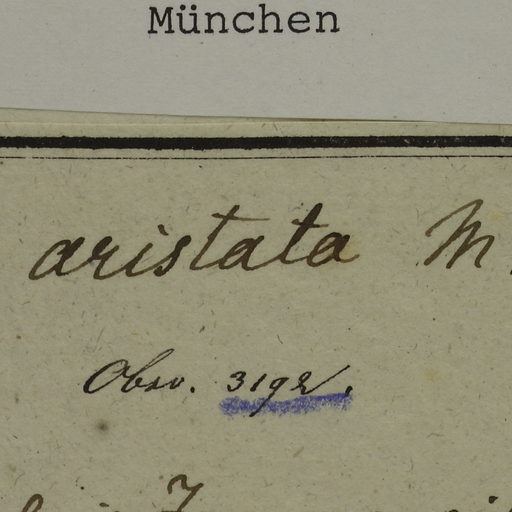 München
aristata M
Obsv. 3192.